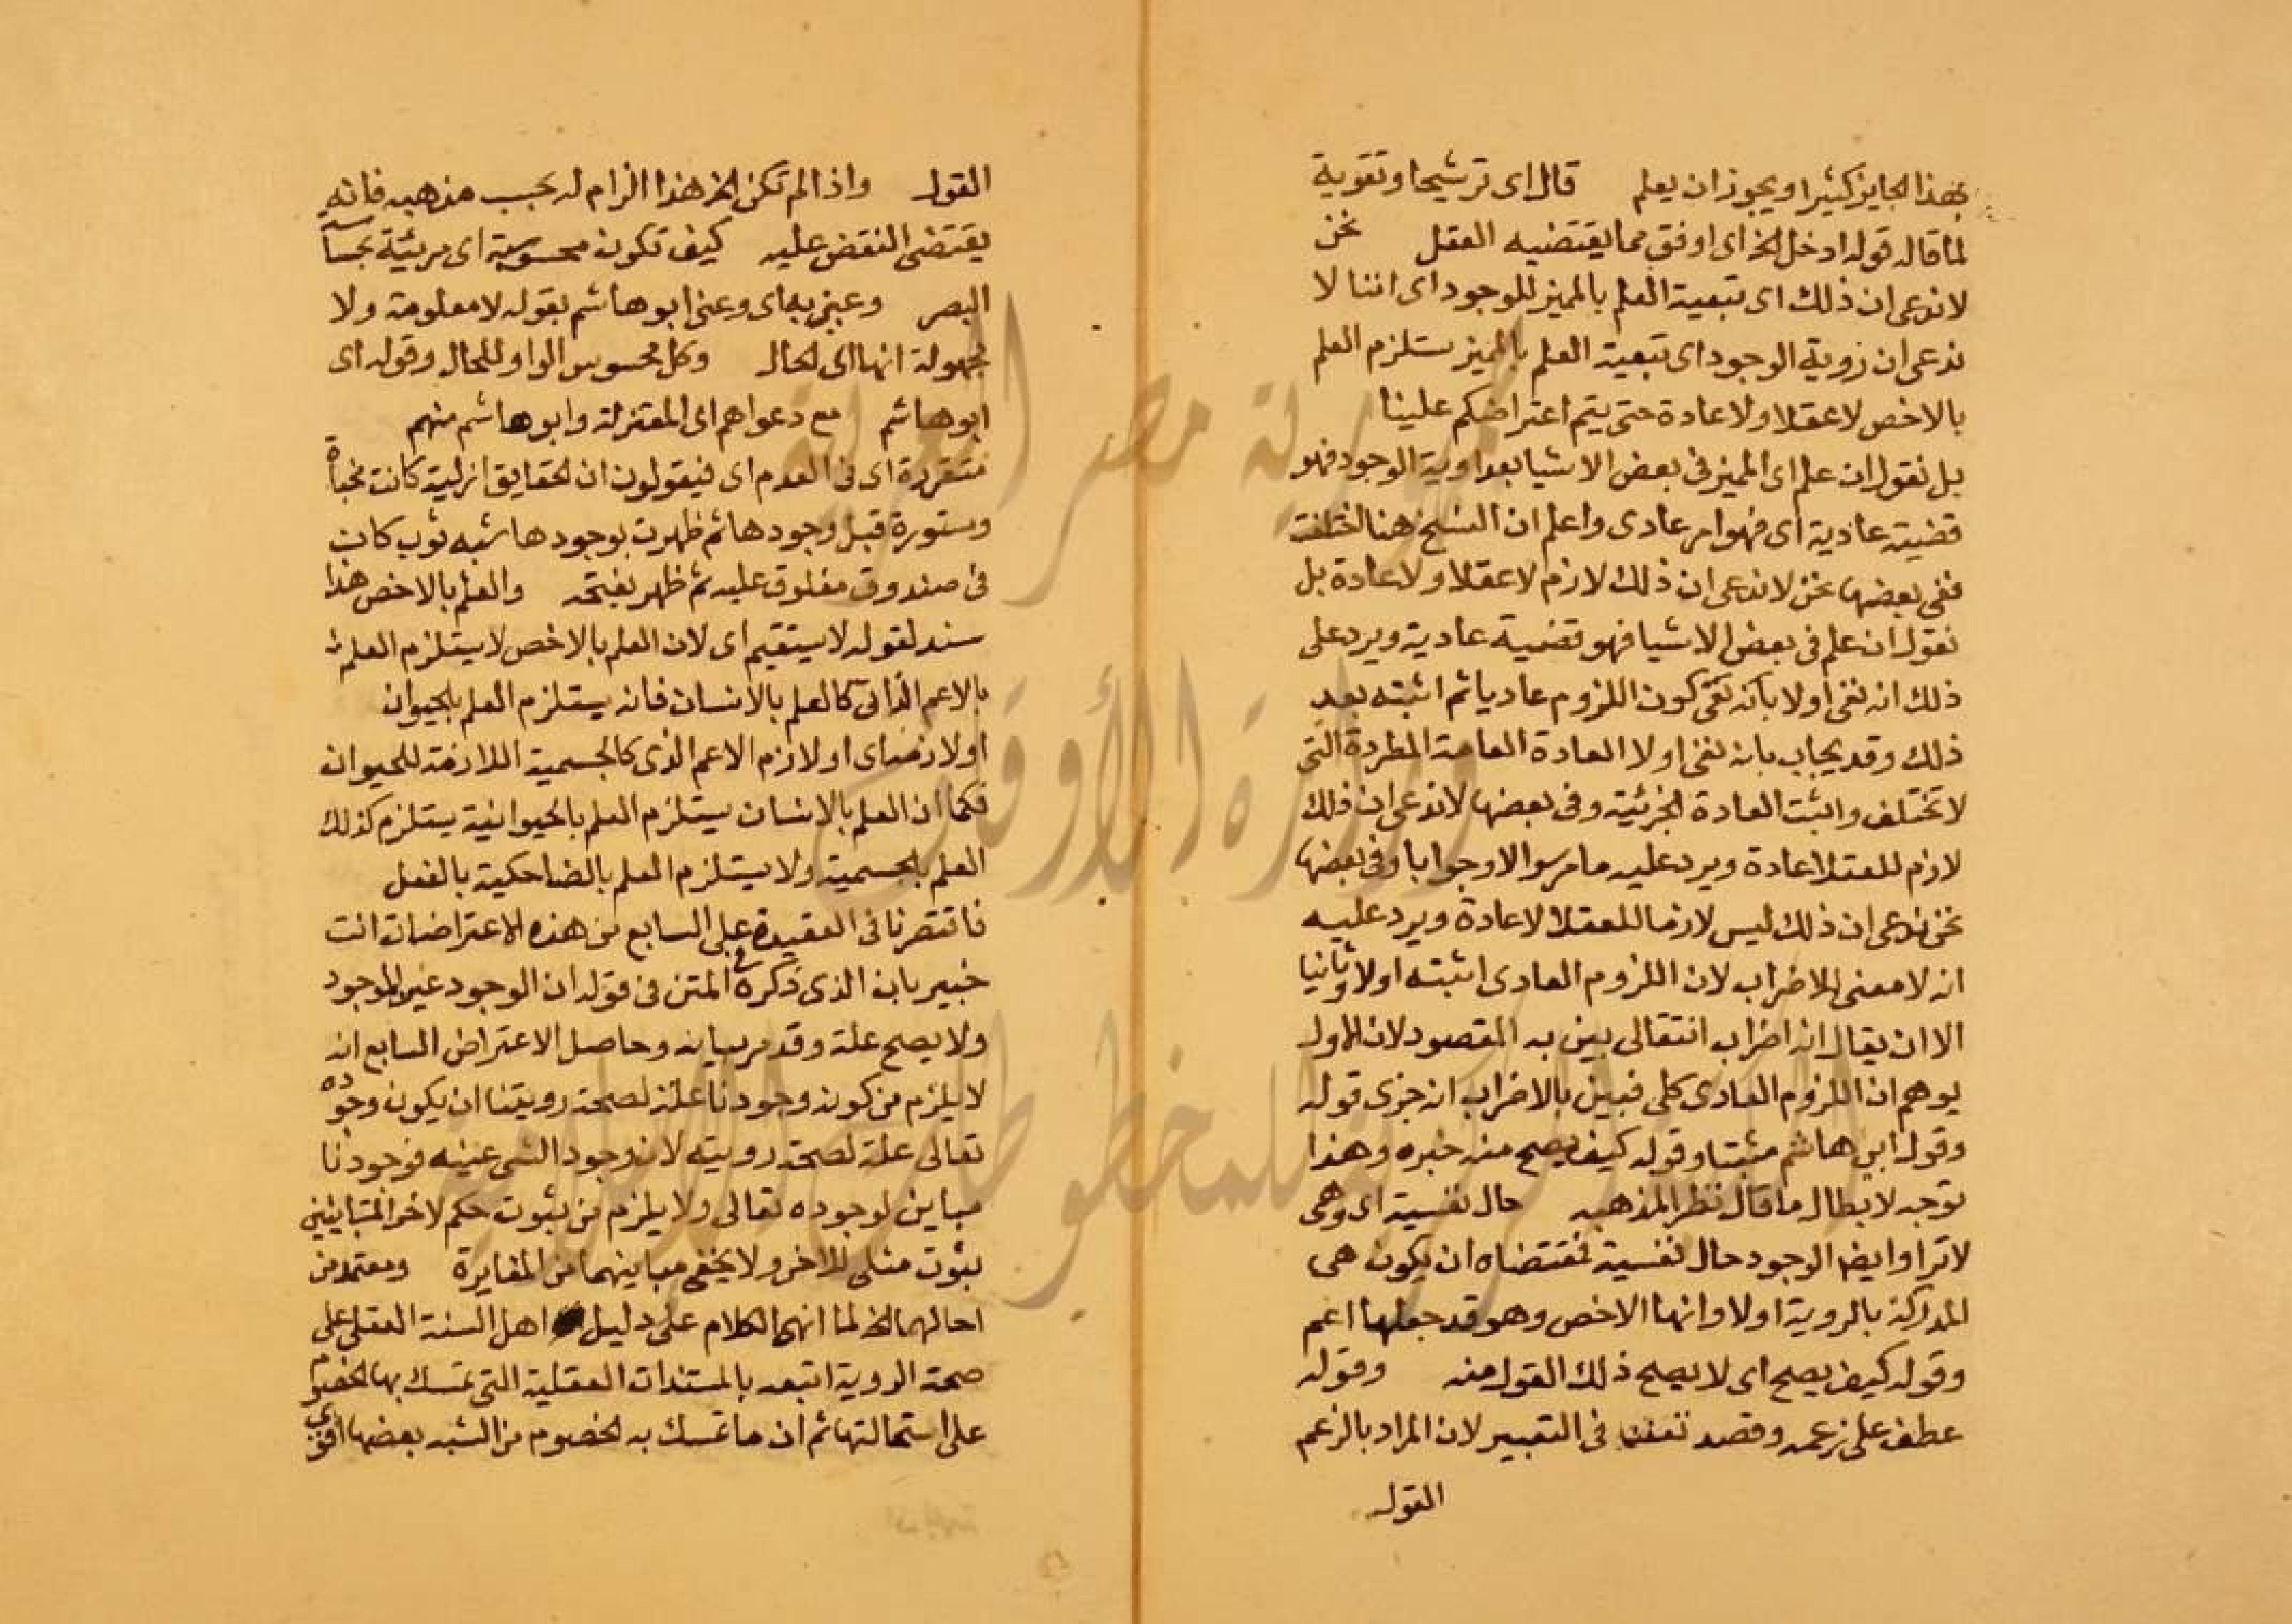 بهذا الجايز كثيرا ويجوز ان يعلم قال اى ترشيحا وتقوية
لما قاله قوله ادخل الخ اى اوفق مما يقتضيه العقل نحن
لا ندعى ان ذلك اى تبعية العلم بالمميز للوجود اى اننا لا
ندعى ان روية الوجود اى تبعية العلم بالمميز يستلزم العلم
بالاخص لا عقلا ولا عادة حتى يتم اعتراضكم علينا
بل نقول ان علم اى المميز فى بعض الاشيا بعد روية الوجود فهو
قضية عادية اى فهو امر عادى واعلم ان النسخ هنا اختلفت
ففى بعضها نحن لا ندعى ان ذلك لازم لا عقلا ولا عادة بل
نقول ان علم فى بعض الاشيا فهو قضية عادية ويرد على
ذلك انه نفى اولا بانه نفى كون اللزوم عاديا ثم اثبته بعد
ذلك وقد يجاب بانه نفى اولا العادة العامة المطردة التى
لا تختلف واثبت العادة الجزئية وفى بعضها لا ندعى ان ذلك
لازم للعقلا عادة ويرد عليه ما مر سوالا وجوابا وفى بعضها
نحن ندعى ان ذلك ليس لازما للعقلا لا عادة ويرد عليه
انه لا معنى للاضراب لان اللزوم العادى اثبته اولا وثانيا
الا ان يقال انه اضراب انتقالى بين به المقصود لان الاول
يوهم ان اللزوم العادى كلى فبين بالاضراب انه جزى قوله
وقول ابى هاشم مثبتا وقوله كيف يصح منه خبره وهذا
توجه لابطال ما قال نظرا لمذهبه حال نفسية اى وهى
لا ترا وايضا الوجود حال نفسية فمقتضاه ان يكون هى
المدركة بالروية اولا وانها الاخص وهو قد جعلها اعم
وقوله كيف يصح اى لا يصح ذلك القول منه وقوله
عطف على زعمه وقصد تفننا فى التعبير لان المراد بالزعم
القول
القول واذا لم تكن الخ هذا الزام له بحسب مذهبه فانه
يقتضى النقض عليه كيف تكون محسوسة اى مرئية بحاسة
البصر وعنى به اى وعنى ابو هاشم بقوله لا معلومة ولا
مجهولة انها اى الحال وكل محسوس الواو للحال وقوله اى
ابو هاشم مع دعواهم اى المعتزلة وابو هاشم منهم
متقررة اى فى العدم اى فيقولون ان الحقايق ازلية كانت مخباة
ومستورة قبل وجودها ثم ظهرت بوجودها شبه ثوب كان
فى صندوق مغلوق عليه ثم ظهر بفتحه والعلم بالاخص هذا
سند لقوله لا يستقيم اى لان العلم بالاخص لا يستلزم العلم
بالاعم الذاتى كالعلم بالانسان فانه يستلزم العلم بالحيوان
او لازمه اى او لازم الاعم الذى كالجسمية اللازمة للحيوان
فكما ان العلم بالانسان يستلزم العلم بالحيوانية يستلزم كذلك
العلم بالجسمية ولا يستلزم العلم بالضاحكية بالفعل
فاقتصرنا فى العقيدة على السابع من هذه الاعتراضات انت
خبير بان الذى ذكره فى المتن فى قوله ان الوجود عين الموجود
ولا يصح علة وقد مر بيانه وحاصل الاعتراض السابع انه
لا يلزم من كون وجودنا علة لصحة رويتنا ان يكون وجوده
تعالى علة لصحة رويته لان وجود الشى عينه فوجودنا
مباين لوجوده تعالى ولا يلزم من ثبوت حكم لاحد المتباينين
ثبوت مثله للاخر ولا يخفى ما بينهما من المغايرة ومعتمد من
احالهما الخ لما انهى الكلام على دليل اهل السنة العقلى على
صحة الروية اتبعه بالمستندات العقلية التى تمسك بها الخصوم
على استحالتها ثم ان ما تمسك به الخصوم من الشبه بعضها اقوى